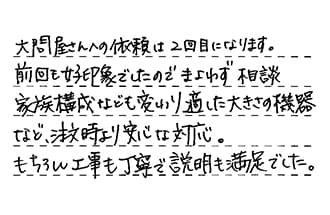 大問屋さんへの依頼は2回目になります。
前回も好印象でしたのでまよわず相談
家族構成なども変わり適した大きさの機器
など、注文時より安心な対応。
もちろん工事も丁寧で説明も満足でした。